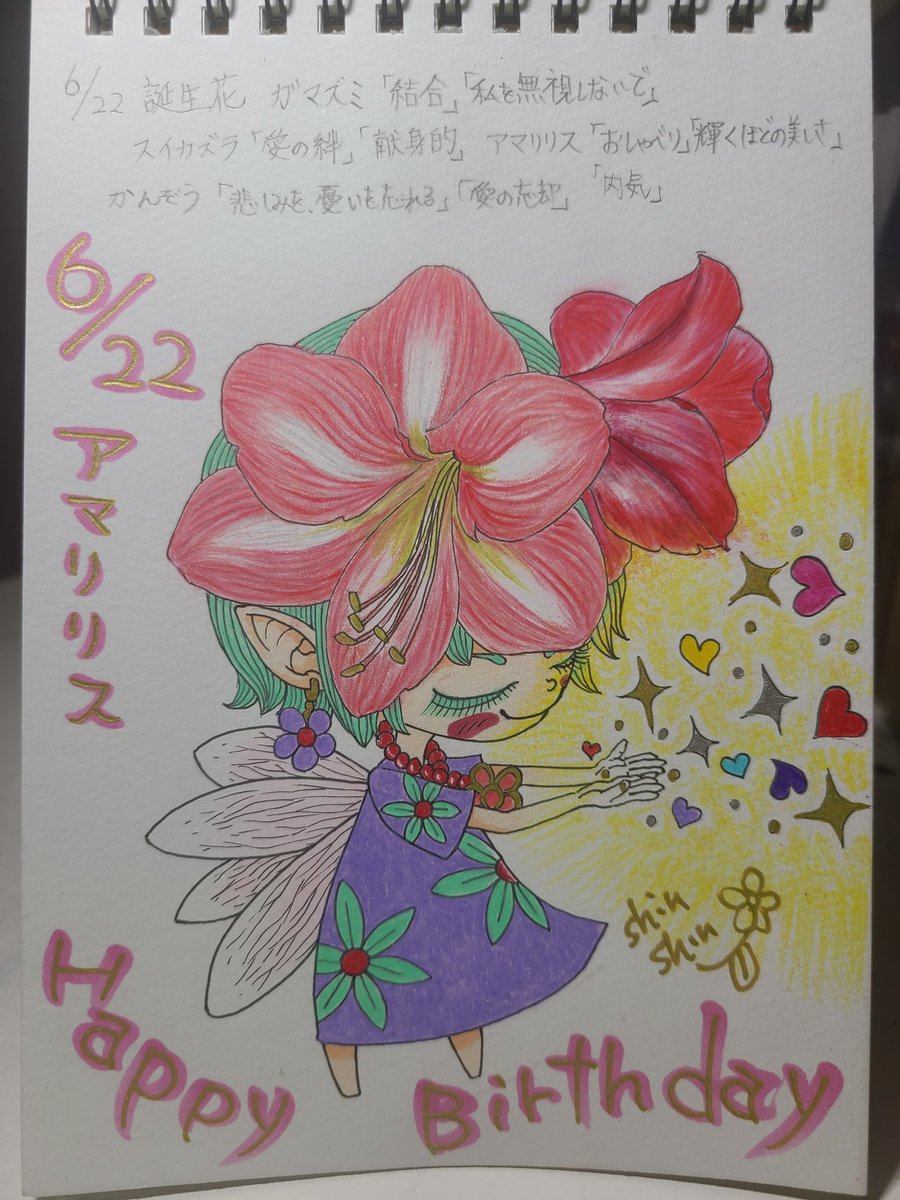 6/22 誕生花 ガマズミ「結合」「私を無視しないで」
スイカズラ「愛の絆」「献身的」 アマリリス「おしゃべり」「輝くほどの美しさ」
「内気」
かんぞう 「悲しみを、憂いを忘れる」「愛の忘却」
6/22
アマリリス
shin
shin
Happy Birthday